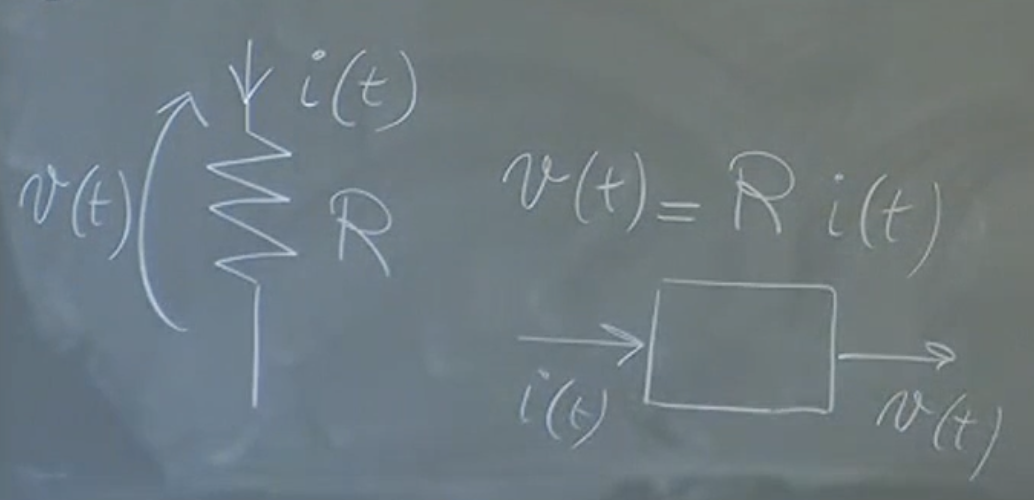 i(t)
v(t)
R
v(t) = R i(t)
i(t)
v(t)